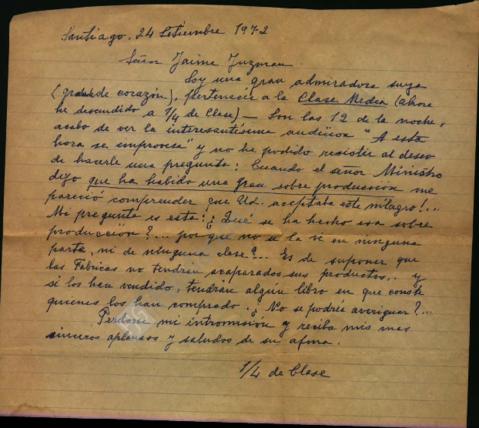 Santiago, 24 Setiembre 1972
Señor Jaime Guzman
Soy una gran admiradora suya
( de corazón), pertenecie a la Clase Media (ahora
he descendido a 1/4 de Clase) – Son las 12 de la noche,
acabo de ver la interesantisima audicion "A esta
hora se improvisa" y no he podido resistir al deseo
de hacerle una pregunta: Cuando el señor Ministro
dijo que ha habido una gran sobre produccion me
pareció comprender que Ud. aceptaba este milagro!...
Mi pregunta es esta: ¿Qué se ha hecho esa sobre
producción?... por que no se la ve en ninguna
parte, ni de ninguna clase?... Es de suponer que
las Fabricas no tendrán acaparados sus productos... y
si los han vendido, tendrán algún libro en que conste
quienes los han comprado. ¿No se podría averiguar?...
Perdone mi intromisión y reciba mis mas
sinceros aplausos y saludos de su afma.
1/4 de Clase